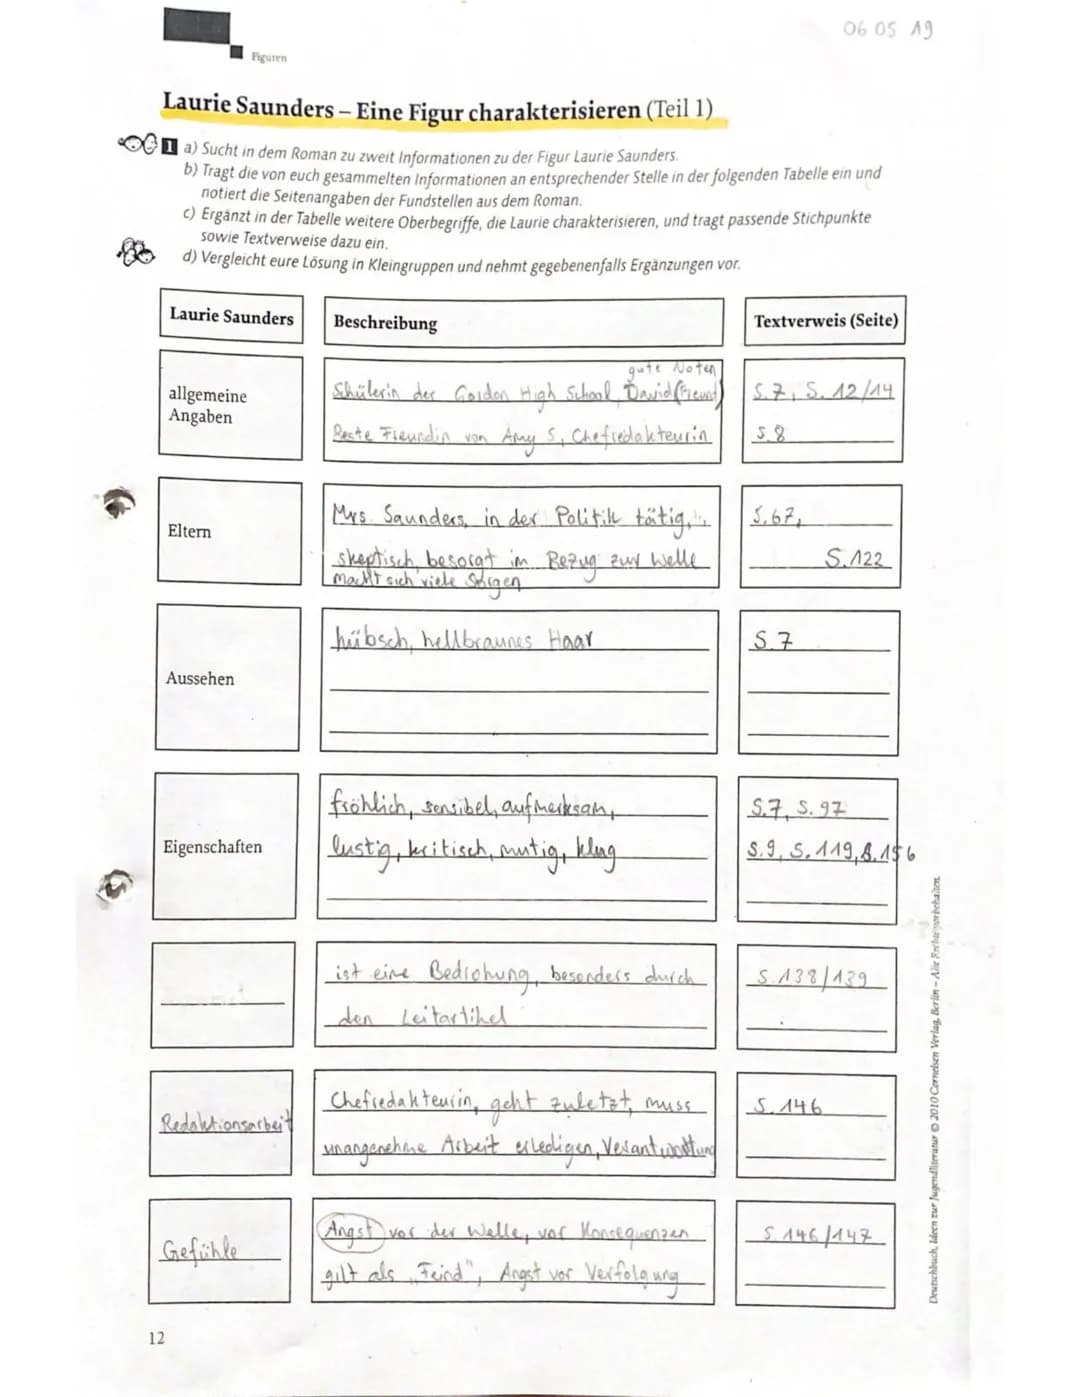 06 05 19
Figuren
Laurie Saunders – Eine Figur charakterisieren (Teil 1)
1 a) Sucht in dem Roman zu zweit Informationen zu der Figur Laurie Saunders.
b) Tragt die von euch gesammelten Informationen an entsprechender Stelle in der folgenden Tabelle ein und
notiert die Seitenangaben der Fundstellen aus dem Roman.
c) Ergänzt in der Tabelle weitere Oberbegriffe, die Laurie charakterisieren, und tragt passende Stichpunkte
sowie Textverweise dazu ein.
d) Vergleicht eure Lösung in Kleingruppen und nehmt gegebenenfalls Ergänzungen vor.
Laurie Saunders
Beschreibung
Textverweis (Seite)
allgemeine
Angaben
gute Noten
Shülerin der Gordon High School, David (Freund)
Beste Freundin von Amy S, Chefredakteurin
S. 7, S. 12/14
S. 8
Eltern
Mrs. Saunders, in der Politik tätig,
skeptisch, besorgt im Bezug zur Welle
macht sich viele Sorgen
S. 67,
S. 122
Aussehen
hübsch, hellbraunes Haar
S. 7
Eigenschaften
fröhlich, sensibel, aufmerksam,
lustig, kritisch, mutig, klug
S. 7, S. 97
S. 9, S. 119, S. 156
ist eine Bedrohung, besonders durch
den Leitartikel
S. 138/139
Redaktionsarbeit
Chefredakteurin, geht zuletzt, muss
unangenehme Arbeit erledigen, Verantwortung
S. 146
Gefühle
Angst vor der Welle, vor Konsequenzen
gilt als „Feind", Angst vor Verfolgung
S. 146/147
12
Deutschbuch, Ideen zur Jugendliteratur © 2010 Cornelsen Verlag, Berlin – Alle Rechte vorbehalten.